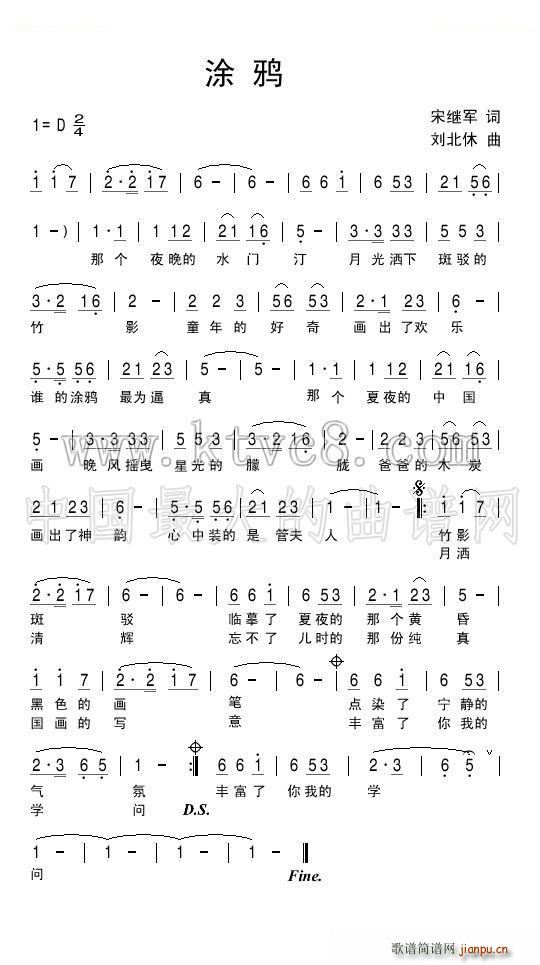 涂鸦
1= D 2/4
宋继军 词
刘北休 曲
1 1 7 | 2·2 1 7 | 6 – | 6 – | 6 6 1 | 6 53 | 21 56 |
1 – ) | 1·1 | 1 12 | 21 16 | 5 – | 3·3 33 | 5 5 3 |
那 个 夜晚的 水 门 汀 月光洒下 斑驳的
3·2 16 | 2 – | 2 2 3 | 56 53 | 2·1 23 | 6 – |
竹 影 童年的 好 奇 画出了欢 乐
5·5 56 | 21 23 | 5 – | 5 – | 1·1 | 1 12 | 21 16 |
谁的涂鸦 最为逼 真 那 个 夏夜的 中 国
5 – | 3·3 33 | 5 53 | 3·2 16 | 2 – | 2 2 3 | 56 53 |
画 晚风摇曳 星光的 朦 胧 爸爸的 木 炭
www.ktvc8.com
2 1 23 | 6 – | 5·5 56 | 2 1 23 | 1 – | 1 – ‖: 1·7 |
画出了神 韵 心中装的 是管夫 人 竹影
月洒
中国最大的曲谱网
2·2 17 | 6 – | 6 – | 6 6 1 | 6 53 | 2·1 23 | 5 – |
斑 驳 临摹了 夏夜的 那个黄 昏
清 辉 忘不了 儿时的 那份纯 真
1 1 7 | 2·2 | 2 1 7 | 6 – | 6 6 1 | 6 53 |
黑色的 画 笔 点染了 宁静的
国画的 写 意 丰富了 你我的
2·3 65 | 1 – :‖ 6 6 1 | 6 53 | 2·3 | 6 5 |
气 氛 丰富了 你我的 学
学 问 D.S.
1 – | 1 – | 1 – | 1 – ‖
问 Fine.
歌谱简谱网
jianpu.cn